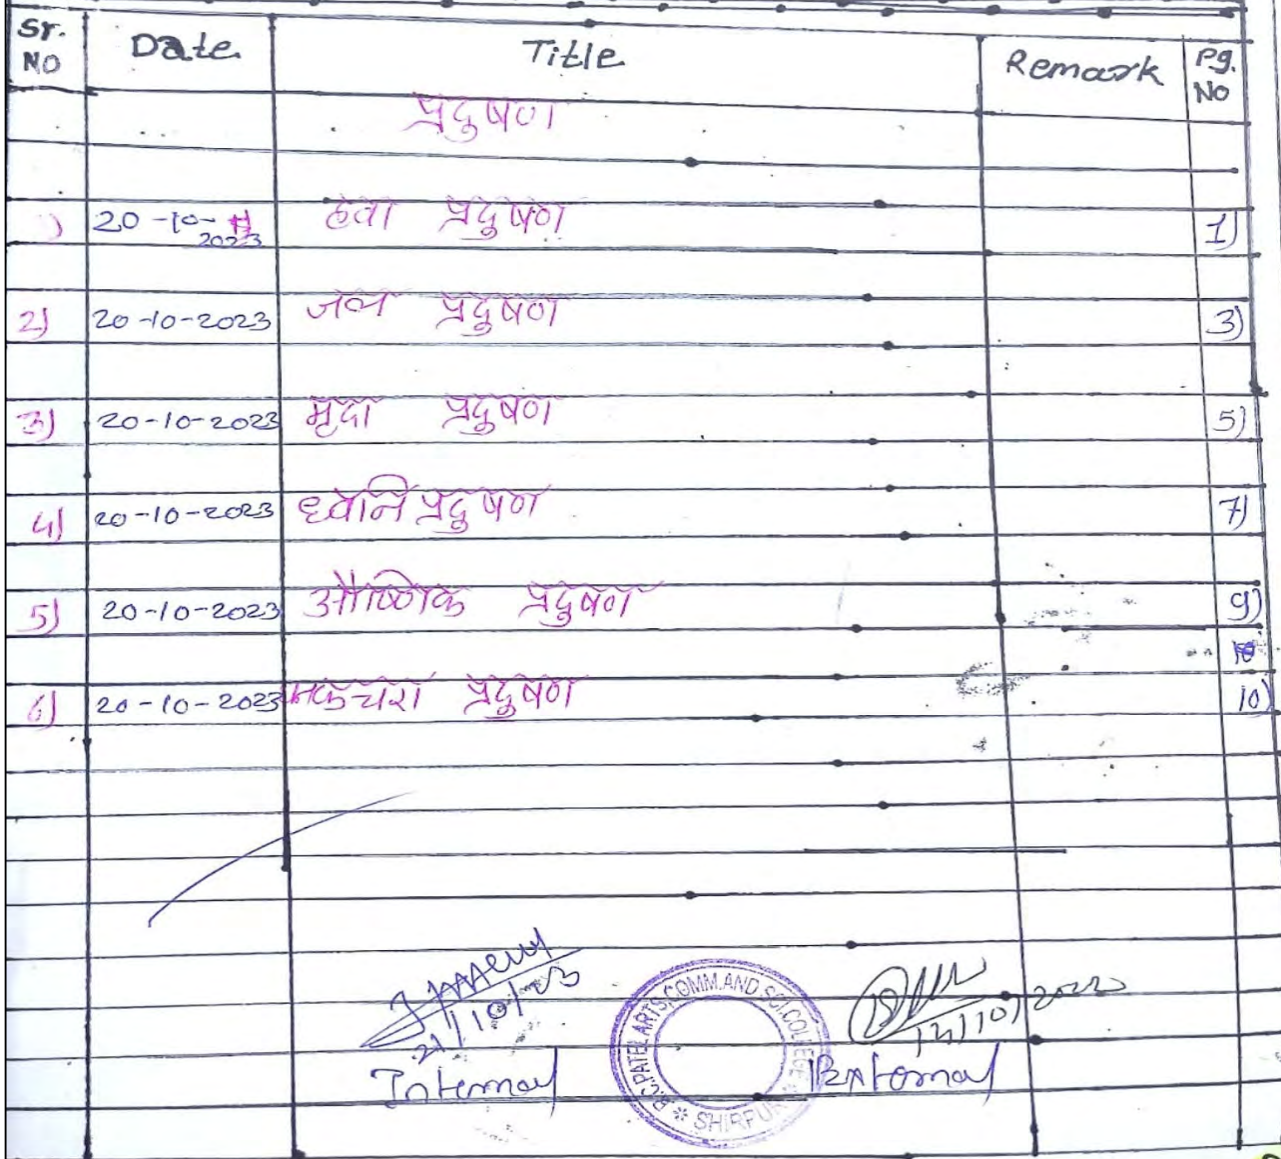 Sr. NO Date Title Remark Pg. No
प्रदुषण
1) 20-10-2023 हवा प्रदुषण 1)
2) 20-10-2023 जल प्रदुषण 3)
3) 20-10-2023 मृदा प्रदुषण 5)
4) 20-10-2023 ध्वनि प्रदुषण 7)
5) 20-10-2023 औष्णिक प्रदुषण 9)
6) 20-10-2023 कचरा प्रदुषण 10)
21/10/23
Internal External
R.C.PATEL ARTS,COMM.AND SCI.COLLEGE * SHIRPUR *